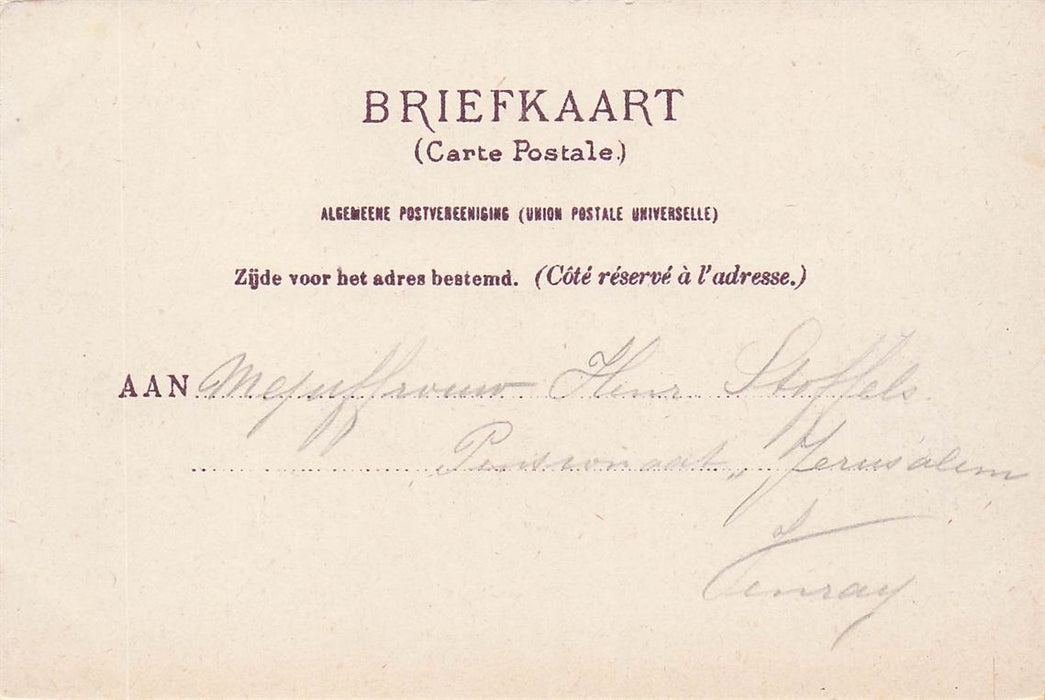 BRIEFKAART
(Carte Postale.)
ALGEMEENE POSTVEREENIGING (UNION POSTALE UNIVERSELLE)
Zijde voor het adres bestemd. (Côté réservé à l'adresse.)
AAN Mejuffrouw Henr Stoffels.
Pensionaat „Jerusalem
Venray